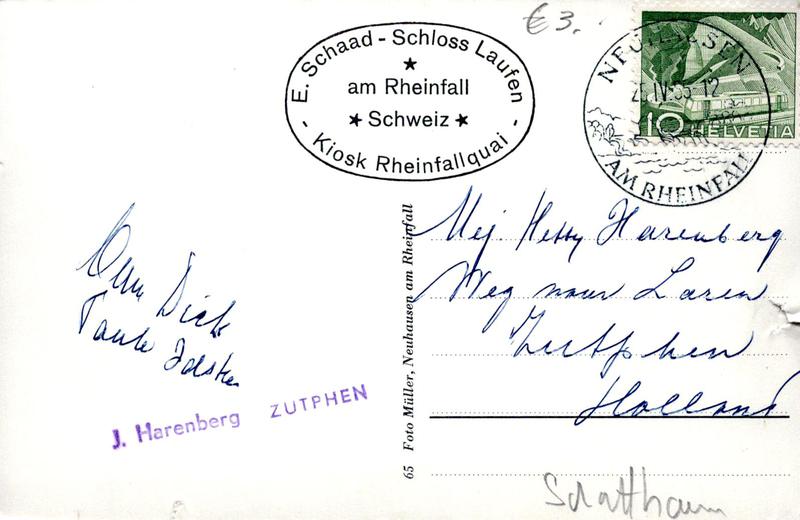 € 3.
E. Schaad - Schloss Laufen
am Rheinfall
Schweiz
- Kiosk Rheinfallquai -
NEUHAUSEN
AM RHEINFALL
10 HELVETIA
Mej. Hetty Harenberg
Weg naar Laren
Zutphen
Holland
Oom Dick
Tante
J. Harenberg ZUTPHEN
65 Foto Müller, Neuhausen am Rheinfall